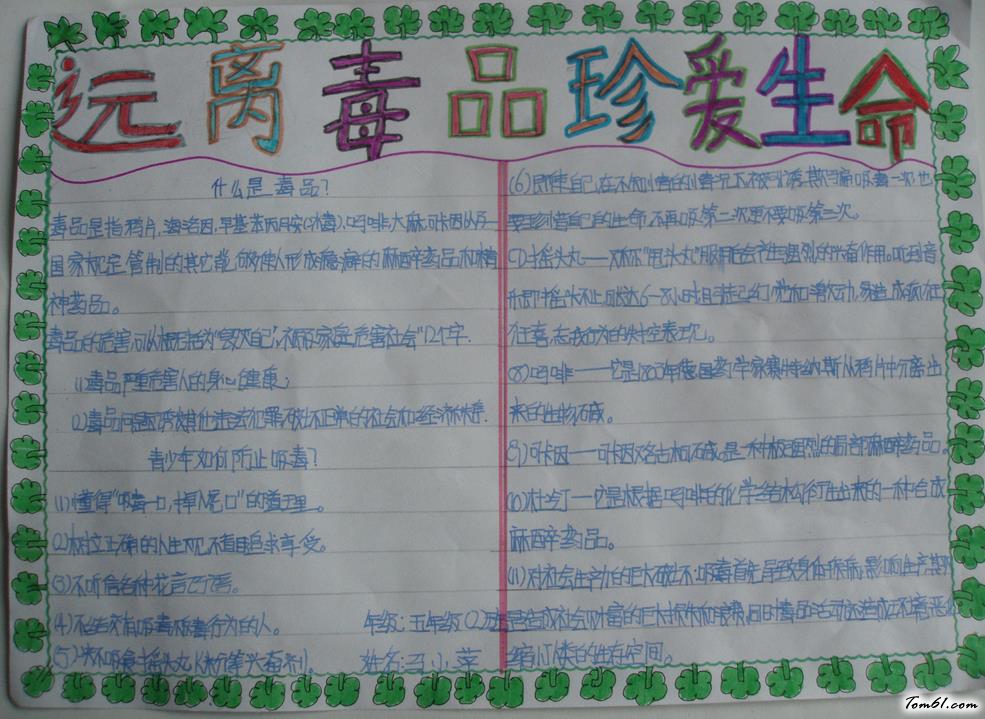 远离毒品珍爱生命
什么是毒品？
毒品是指鸦片、海洛因、甲基苯丙胺(冰毒)、吗啡、大麻、可卡因以及
国家规定管制的其它能够使人形成瘾癖的麻醉药品和精
神药品。
毒品的危害,可以概括为"毁灭自己,祸及家庭,危害社会"12个字.
(1)毒品严重危害人的身心健康;
(2)毒品问题诱发其他违法犯罪,破坏正常的社会和经济秩序.
青少年如何防止吸毒？
(1)懂得"吸毒一口,掉入虎口"的道理。
(2)树立正确的人生观,不盲目追求享受。
(3)不听信各种花言巧语。
(4)不结交有吸毒贩毒行为的人。
年级：五年级(2)班
(5)
不吸食摇头丸、
等兴奋剂。
姓名：马小萍
(6)即使自己在不知
的情况下被引诱
吸毒一次,也
要珍惜自己的生命,不再吸第二次,更不要吸第三次。
(7)摇头丸——又称"甩头丸"服用后会产生强烈的兴奋作用。听到音
乐即摇头不止,可达6-8小时,且
幻觉和
冲动,易造成疯
狂喜、
行为的时空表现。
(8)吗啡——它是1806年德国药学家赛特纳斯从鸦片中分离出
来的生物碱。
(9)可卡因——可卡因又名古柯碱,是一种极强烈的局部麻醉药品。
(10)杜冷丁——它是根据吗啡的化学结构衍生出来的一种合成
麻醉药品。
(11)对社会生产力的巨大破坏:吸毒首先导致身体疾病,影响生产,其次
是造成社会财富的巨大损失和浪费,同时毒品活动还造成环境恶化
缩小人类的生存空间。
Tom61.com